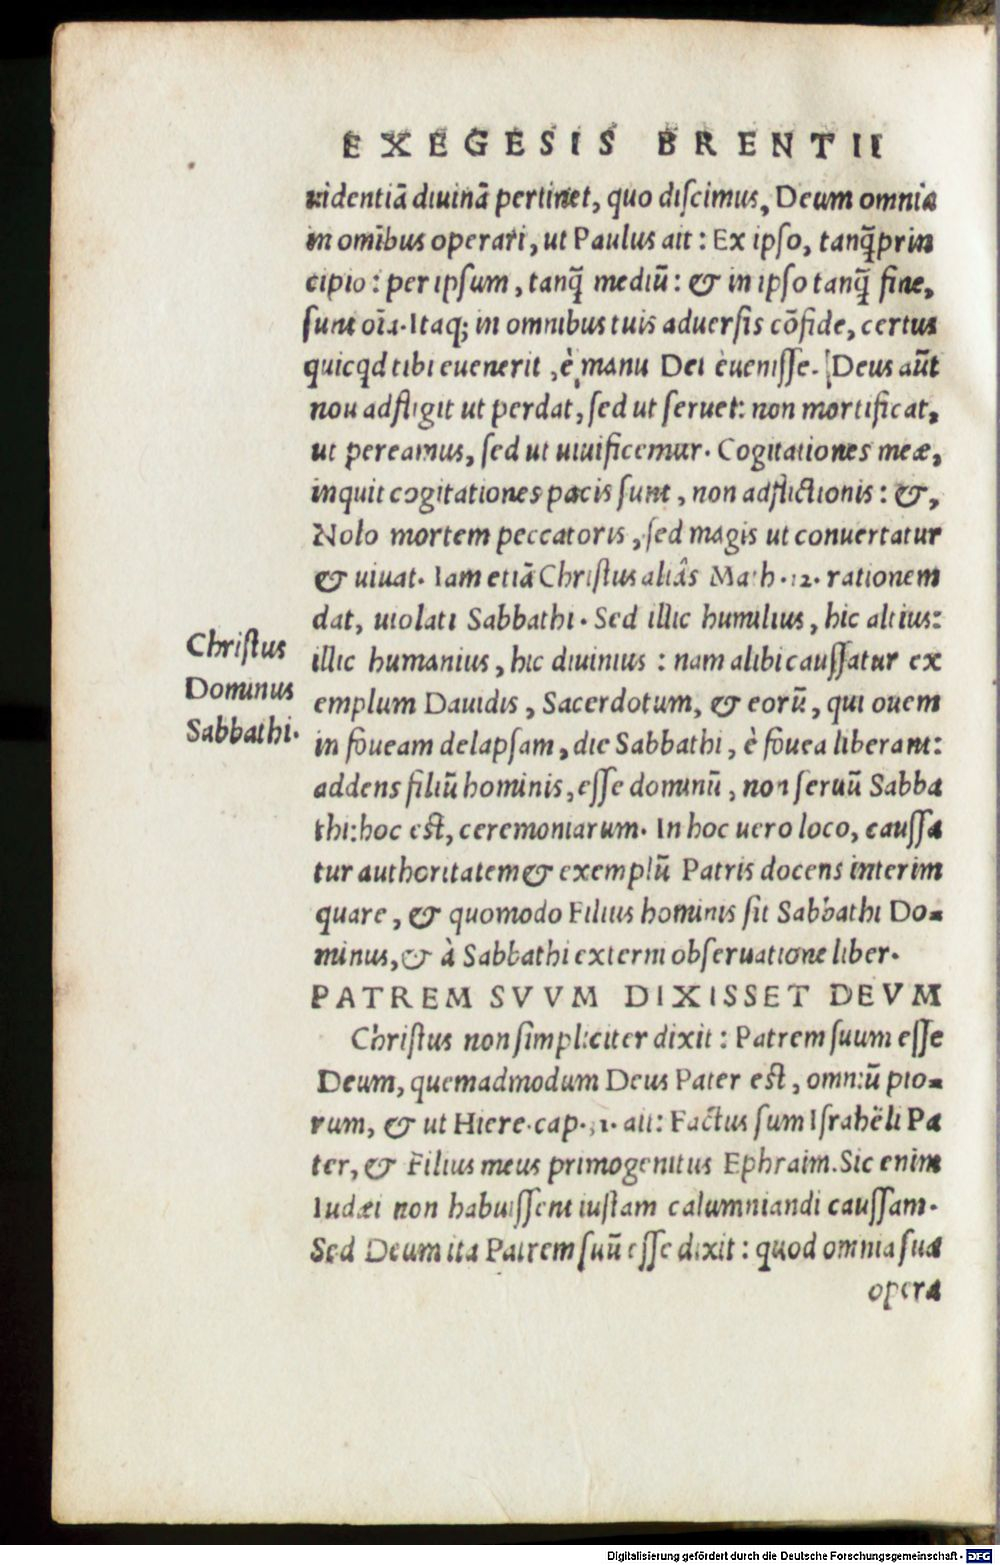 EXEGESIS BRENTII
uidentiā diuinā pertinet, quo discimus, Deum omnia
in omībus operari, ut Paulus ait: Ex ipso, tanq̃ prin
cipio: per ipsum, tanq̃ mediū: & in ipso tanq̃ fine,
sunt oīa. Itaq; in omnibus tuis aduersis cōfide, certus
quicqd tibi euenerit, è manu Dei euenisse. Deus aūt
non adfligit ut perdat, sed ut seruet: non mortificat,
ut pereamus, sed ut uiuificemur. Cogitationes meæ,
inquit cogitationes pacis sunt, non adflictionis: &,
Nolo mortem peccatoris, sed magis ut conuertatur
& uiuat. Iam etiā Christus aliâs Math. 12. rationem
dat, uiolati Sabbathi. Sed illic humilius, hic altius:
Christus
Dominus
Sabbathi.
illic humanius, hic diuinius: nam alibi caussatur ex
emplum Dauidis, Sacerdotum, & eorū, qui ouem
in foueam delapsam, die Sabbathi, è fouea liberant:
addens filiū hominis, esse dominū, non seruū Sabba
thi: hoc est, ceremoniarum. In hoc uero loco, caussa
tur authoritatem & exemplū Patris docens interim
quare, & quomodo Filius hominis sit Sabbathi Do-
minus, & à Sabbathi externi obseruatione liber.
PATREM SVVM DIXISSET DEVM
Christus non simpliciter dixit: Patrem suum esse
Deum, quemadmodum Deus Pater est, omniū pio-
rum, & ut Hiere. cap. 31. ait: Factus sum Israhëli Pa
ter, & Filius meus primogenitus Ephraim. Sic enim
Iudæi non habuissent iustam calumniandi caussam.
Sed Deum ita Patrem suū esse dixit: quod omnia sua
opera
Digitalisierung gefördert durch die Deutsche Forschungsgemeinschaft - DFG